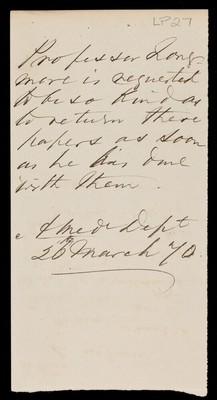 LP27
Professor Long-
more is requested
to be so kind as
to return these
papers as soon
as he has done
with them.
A Med Dept
26 March 70.